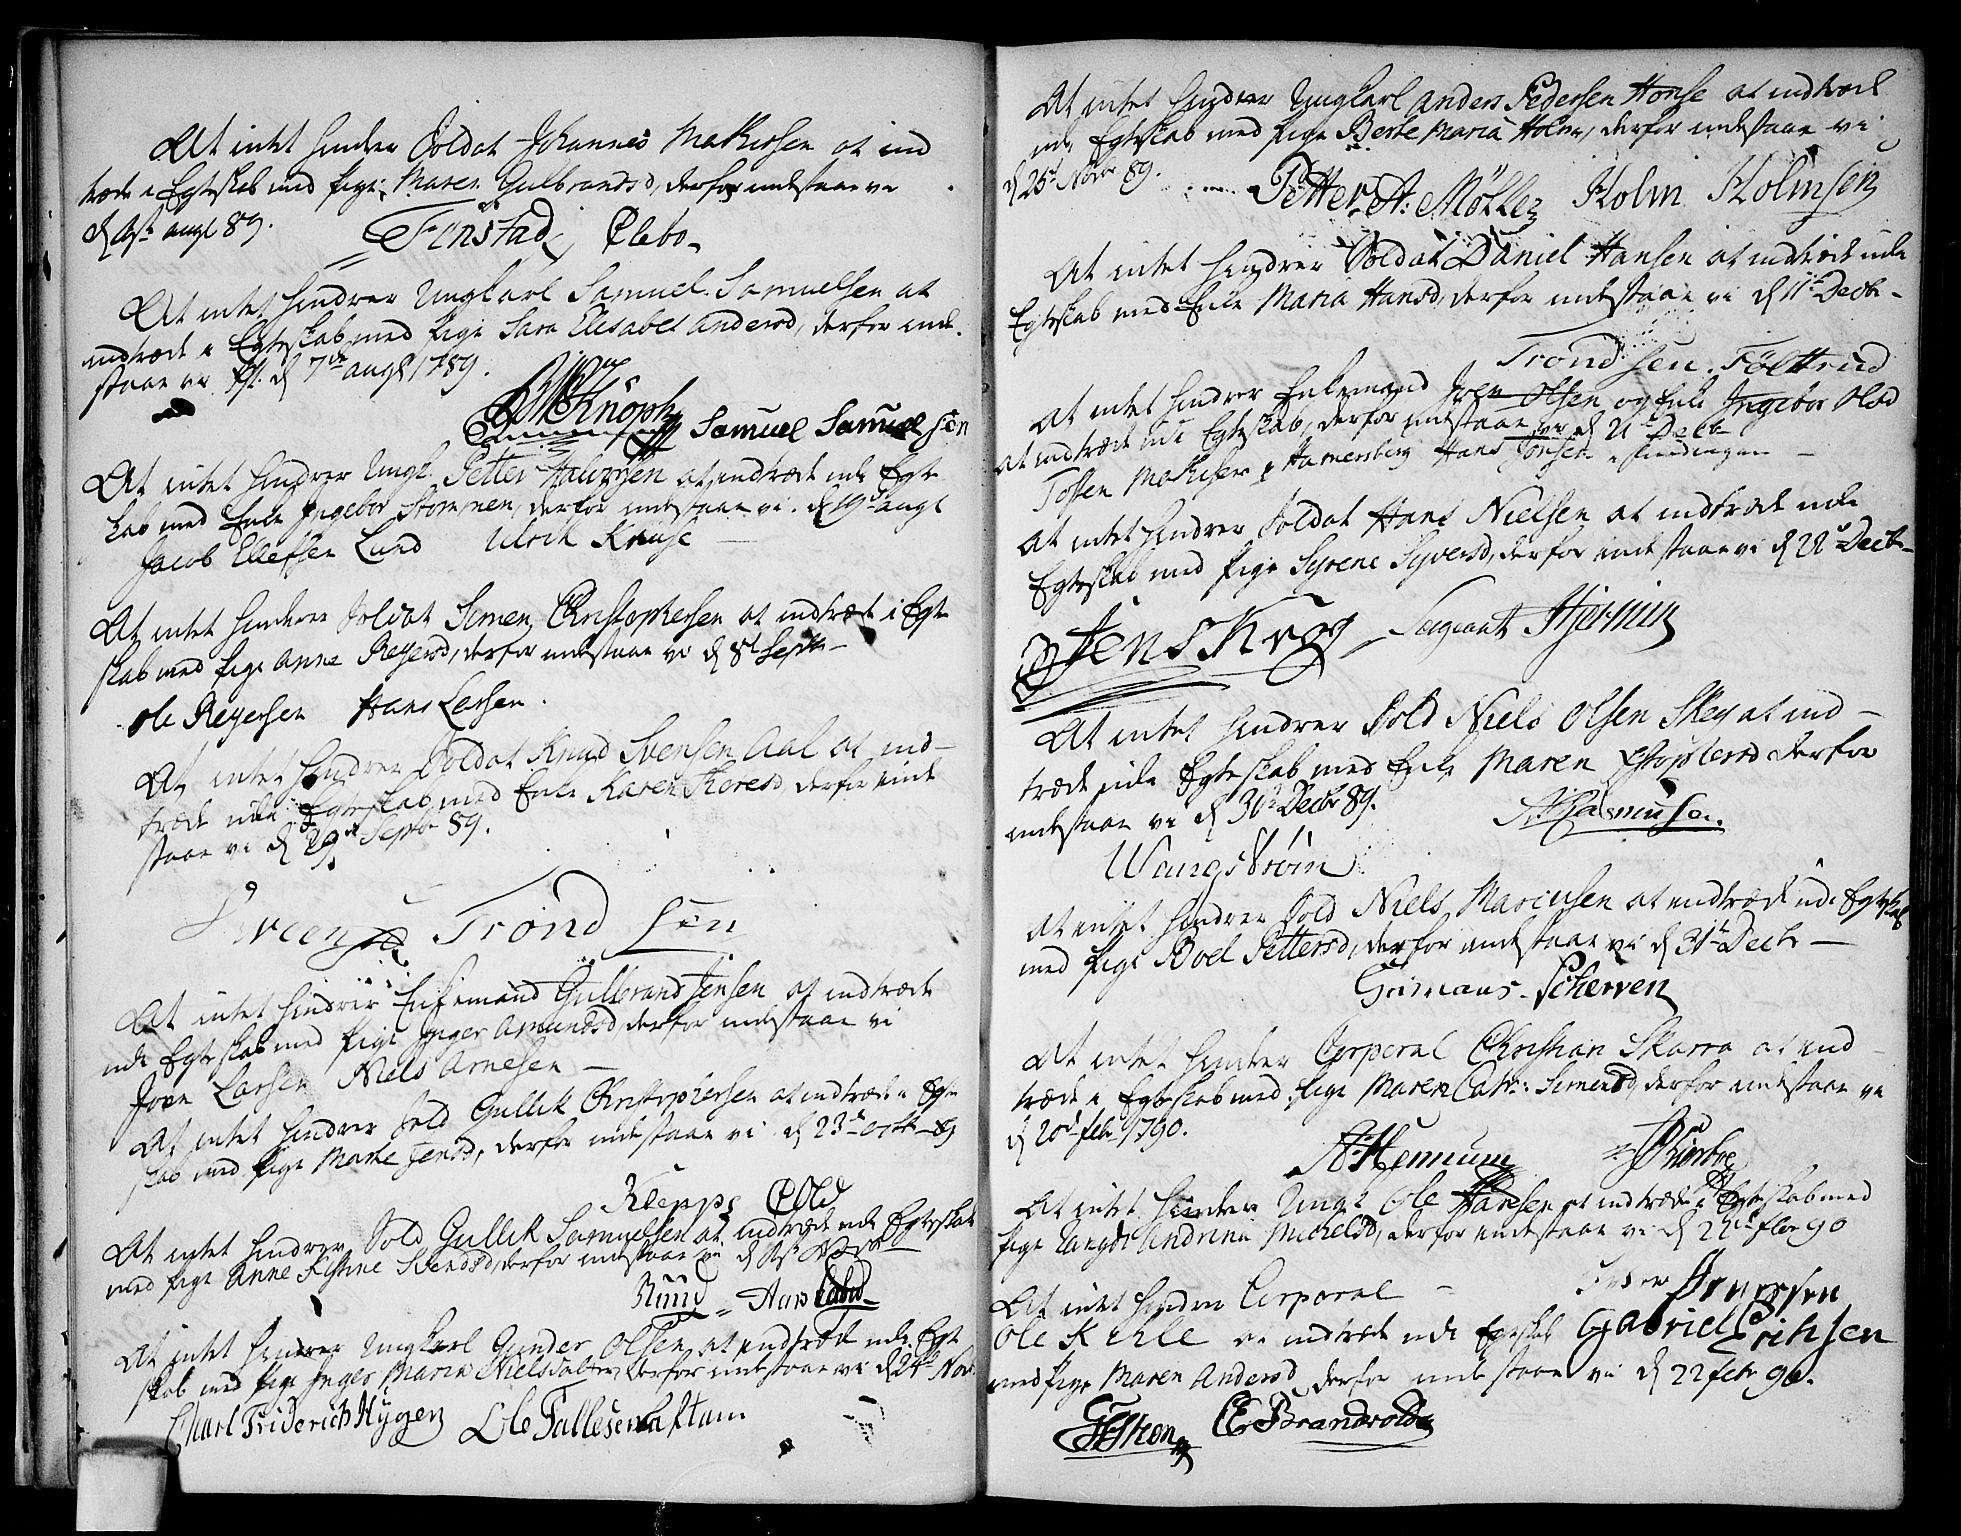 At intet hinder Soldat Johannes Mathissen at ind
træde i Egteskab med Pige Maren Gulbrandsd, derfor indestaar vi
d 1st augt 89.
Finstad Clebo
At intet hindrer Ungkarl Samuel Samuelsen at
indtræde i Egteskab med Pige Sara Elisabet Andersd, derfor inde
staar vi d 7de augt 1789.
Knoph Samuel Samuelsen
At intet hindrer Ungk. Petter Halvorsen at indtræde udi Egte
skab med Enke Ingebor Strømmen, derfor indestaar vi. d 19d augt
Jacob Ellefsen Lund Ulrik Krause
At intet hinderer Soldat Simen Christophersen at indtræde i Egte
skab med Pige Anne Reyersd, derfor indestaar vi d 8d Septbr
Ole Reyersen Hans Larsen.
At intet hindrer Soldat Knud Svensen Aal at ind-
træde udi Egteskab med Enke Karen Toresd derfor inde
staar vi d 29d Septbr 89.
Sveen Trond sen
At intet hindrer Enkemand Gulbrand Jensen at indtræde
udi Egteskab med Pige Inger Amundsd, derfor indestaar vi
Joen Larsen Niels Arnesen
At intet hindrer Sold Gullik Christophersen at indtræde i Egte
skab med Pige Marte Jensd, derfor indestaar vi d 23d octbr 89
Klepps Old
At intet hindrer Sold Gullik Samuelsen at indtræde udi Egteskab
med Pige Anne Kistine Svendsd, derfor indestaar vi d 1st Novbr
Ruud Hans
At intet hindrer Ungkarl Gunder Olsen at indtræde udi Egte
skab med Pige Inger Maria Nielsdatter, derfor indestaar vi d 24d Nov.
Charl Friderich Hygen Ole Tallesen Caftam
At intet hindrer Ungkarl Anders Pedersen Honse at indtræde
udi Egteskab med Pige Berte Maria Holm, derfor indestaar vi
d 25d Novbr 89.
Petter A: Møller Holm Holmsen
At intet hindrer Soldat Daniel Hansen at indtræde udi
Egteskab med Enke Maria Hansd, derfor indestaar vi d 11d Decbr
Trondsen. Foltrud
At intet hindrer Enkemand Iver Olsen og Enke Ingebor Olsd
at indtræde udi Egteskab, derfor indestaar vi d 21d Decbr
Tosten Mathisen Hamersberg Hans Jonsen
At intet hindrer Soldat Hans Nielsen at indtræde udi
Egteskab med Pige Syrene Syversd, derfor indestaar vi d 22d Decbr
Jens Krog Sergeant Hjermin
At intet hindrer Sold Niels Olsen Skey at ind-
træde udi Egteskab med Enke Maren Christophersd derfor
indestaar vi d 30d Decbr 89.
Rasmusen.
Wangstrøm
At intet hindrer Sold Niels Mariusen at indtræde udi Egteskab
med Pige Boel Pettersd, derfor indestaar vi d 31d Decbr
Grimans Scherven
At intet hinder Corporal Christian Skarra at ind
træde i Egteskab med Pige Maren Catr: Simensd, derfor indestaar vi
d 20d febr 1790.
A Hennum
At intet hinder Ungk Ole Hansen at indtræde i Egteskab med
Pige Andrina Michelsd, derfor indestaar vi d 22d febr 90
Iversen
At intet hindrer Corporal
Ole Kihle at indtræde udi Egteskab Gabriel Erichsen
med Pige Maren Andersd derfor indestaar vi d 22 febr 90.
Brandvold